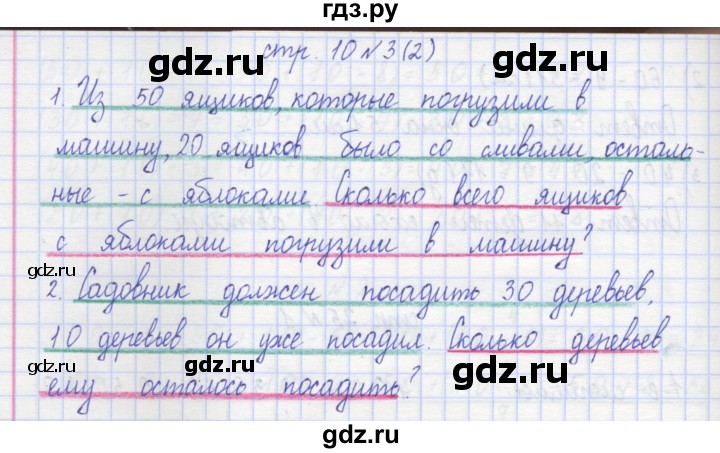 гдз.ру
стр. 10 N 3(2)
1. Из 50 ящиков, которые погрузили в
машину, 20 ящиков было со сливами, осталь-
ные - с яблоками. Сколько всего ящиков
с яблоками погрузили в машину?
2. Садовник должен посадить 30 деревьев,
10 деревьев он уже посадил. Сколько деревьев
ему осталось посадить?
gdz.ru
gdz.ru
gdz.ru
gdz.ru
gdz.ru
gdz.ru
gdz.ru
gdz.ru
gdz.ru
gdz.ru